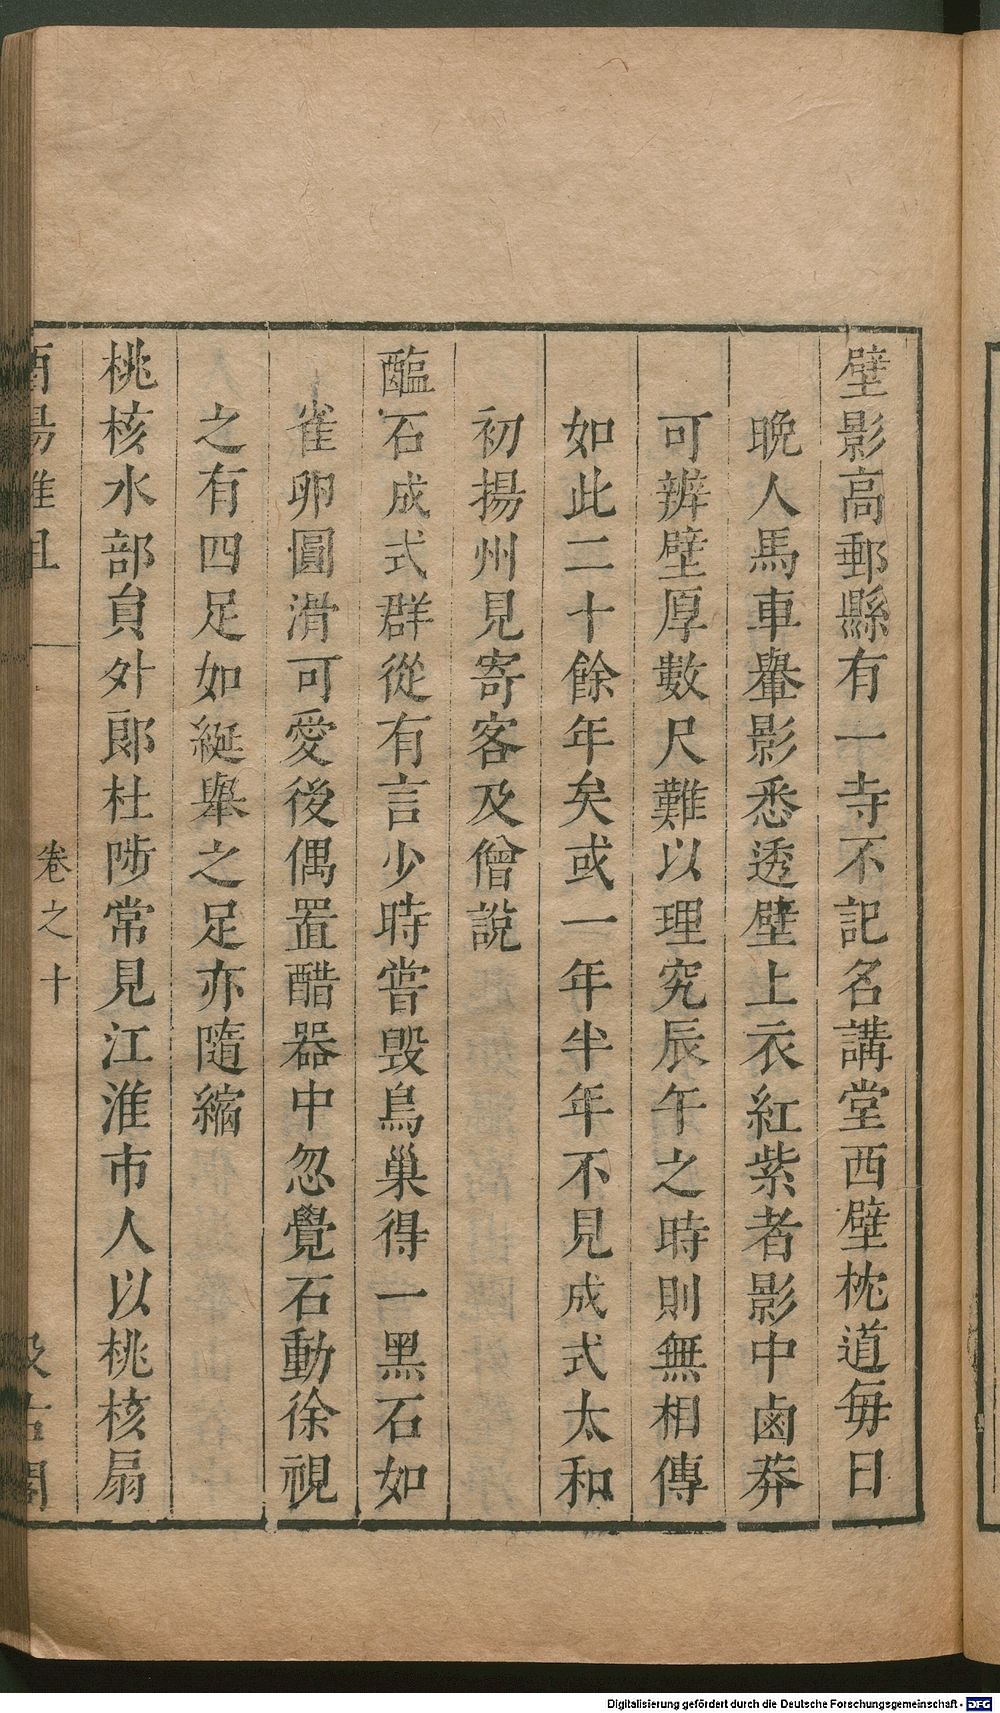 壁影高郵縣有一寺不記名講堂西壁枕道每日
晚人馬車轝影悉透壁上衣紅紫者影中鹵莽
可辨壁厚數尺難以理究辰午之時則無相傳
如此二十餘年矣或一年半年不見成式太和
初揚州見寄客及僧說
醢石成式群從有言少時嘗毀鳥巢得一黑石如
雀卵圓滑可愛後偶置醋器中忽覺石動徐視
之有四足如綖舉之足亦隨縮
桃核水部員外郎杜陟常見江淮市人以桃核扇
酉陽雜俎 卷之十 汲古閣
Digitalisierung gefördert durch die Deutsche Forschungsgemeinschaft - DFG